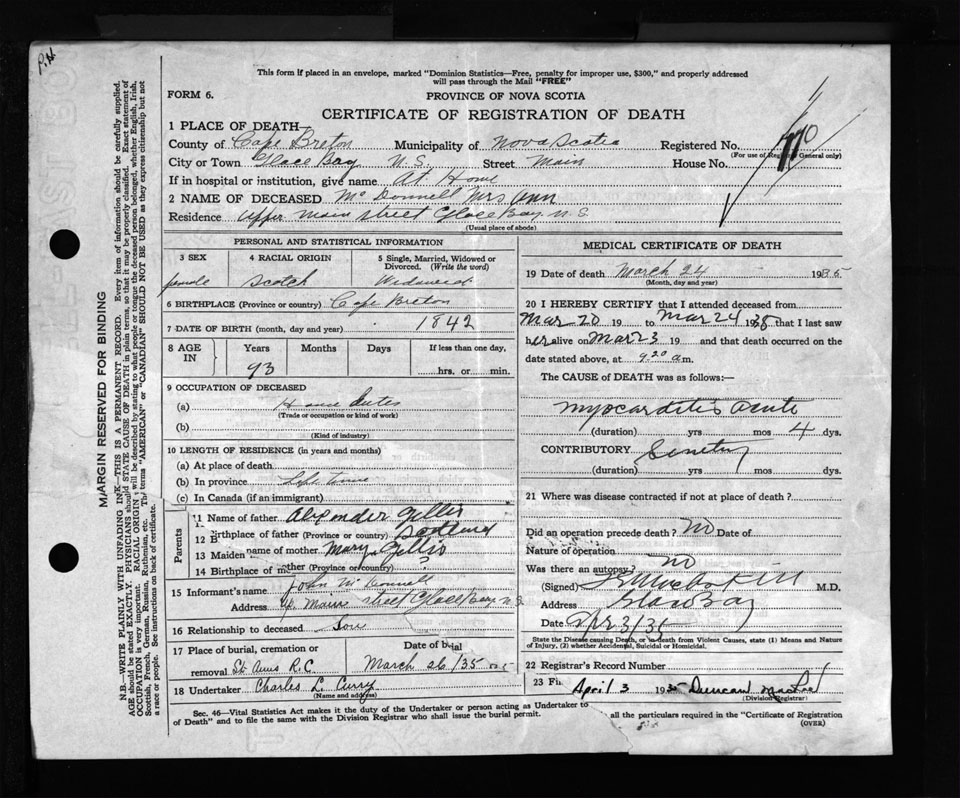 P.H.
This form if placed in an envelope, marked "Dominion Statistics—Free, penalty for improper use, $300," and properly addressed
will pass through the Mail "FREE"
FORM 6.
PROVINCE OF NOVA SCOTIA
CERTIFICATE OF REGISTRATION OF DEATH
1 PLACE OF DEATH—
County of Cape Breton Municipality of Nova Scotia Registered No.
(For use of Registrar General only)
City or Town Glace Bay N.S. Street Main House No.
If in hospital or institution, give name At Home
2 NAME OF DECEASED McDonnell Mrs Ann
Residence Upper Main Street Glace Bay N.S.
(Usual place of abode)
PERSONAL AND STATISTICAL INFORMATION
3 SEX 4 RACIAL ORIGIN 5 Single, Married, Widowed or Divorced. (Write the word)
female Scotch Widowed
6 BIRTHPLACE (Province or country) Cape Breton
7 DATE OF BIRTH (month, day and year) 1842
8 AGE IN Years Months Days If less than one day,
93 hrs. or min.
9 OCCUPATION OF DECEASED
(a) House Duties
(Trade or occupation or kind of work)
(b)
(Kind of industry)
10 LENGTH OF RESIDENCE (in years and months)
(a) At place of death
(b) In province Life time
(c) In Canada (if an immigrant)
Parents
11 Name of father Alexander Gillis
12 Birthplace of father (Province or country) Scotland
13 Maiden name of mother Mary Gillis
14 Birthplace of mother (Province or country)
15 Informant's name John McDonnell
Address Main street Glace Bay N.S.
16 Relationship to deceased Son
17 Place of burial, cremation or removal St Anns R.C. Date of burial March 26/35
18 Undertaker Charles L. Curry
(Name and address)
MEDICAL CERTIFICATE OF DEATH
19 Date of death March 24 1935
(Month, day and year)
20 I HEREBY CERTIFY that I attended deceased from
Mar 20 19 to Mar 24 1935 that I last saw
her alive on Mar 23 19 and that death occurred on the
date stated above, at 9.20 a m.
The CAUSE of DEATH was as follows:—
Myocarditis acute
(duration) yrs mos 4 dys.
CONTRIBUTORY Senility
(duration) yrs mos dys.
21 Where was disease contracted if not at place of death?
Did an operation precede death? No Date of
Nature of operation
Was there an autopsy? No
(Signed) M.D.
Address Glace Bay
Date Apr 3/35
State the Disease causing Death, or in death from Violent Causes, state (1) Means and Nature
of Injury, (2) whether Accidental, Suicidal or Homicidal.
22 Registrar's Record Number
23 Fi April 3 1935 Duncan
(Division Registrar)
Sec. 46—Vital Statistics Act makes it the duty of the Undertaker or person acting as Undertaker to
all the particulars required in the "Certificate of Registration
of Death" and to file the same with the Division Registrar who shall issue the burial permit.
(OVER)
MARGIN RESERVED FOR BINDING
N.B.—WRITE PLAINLY WITH UNFADING INK—THIS IS A PERMANENT RECORD. Every item of information should be carefully supplied.
AGE should be stated EXACTLY. PHYSICIANS should STATE CAUSE OF DEATH in plain terms, so that it may be properly classified. Exact statement of
OCCUPATION is very important. RACIAL ORIGIN will be described by stating to what people or tongue the deceased person belonged, whether English, Irish,
Scottish, French, German, Russian, Ruthenian, etc. The terms "AMERICAN" or "CANADIAN" SHOULD NOT BE USED as they express citizenship but not
a race or people. See instructions on back of certificate.